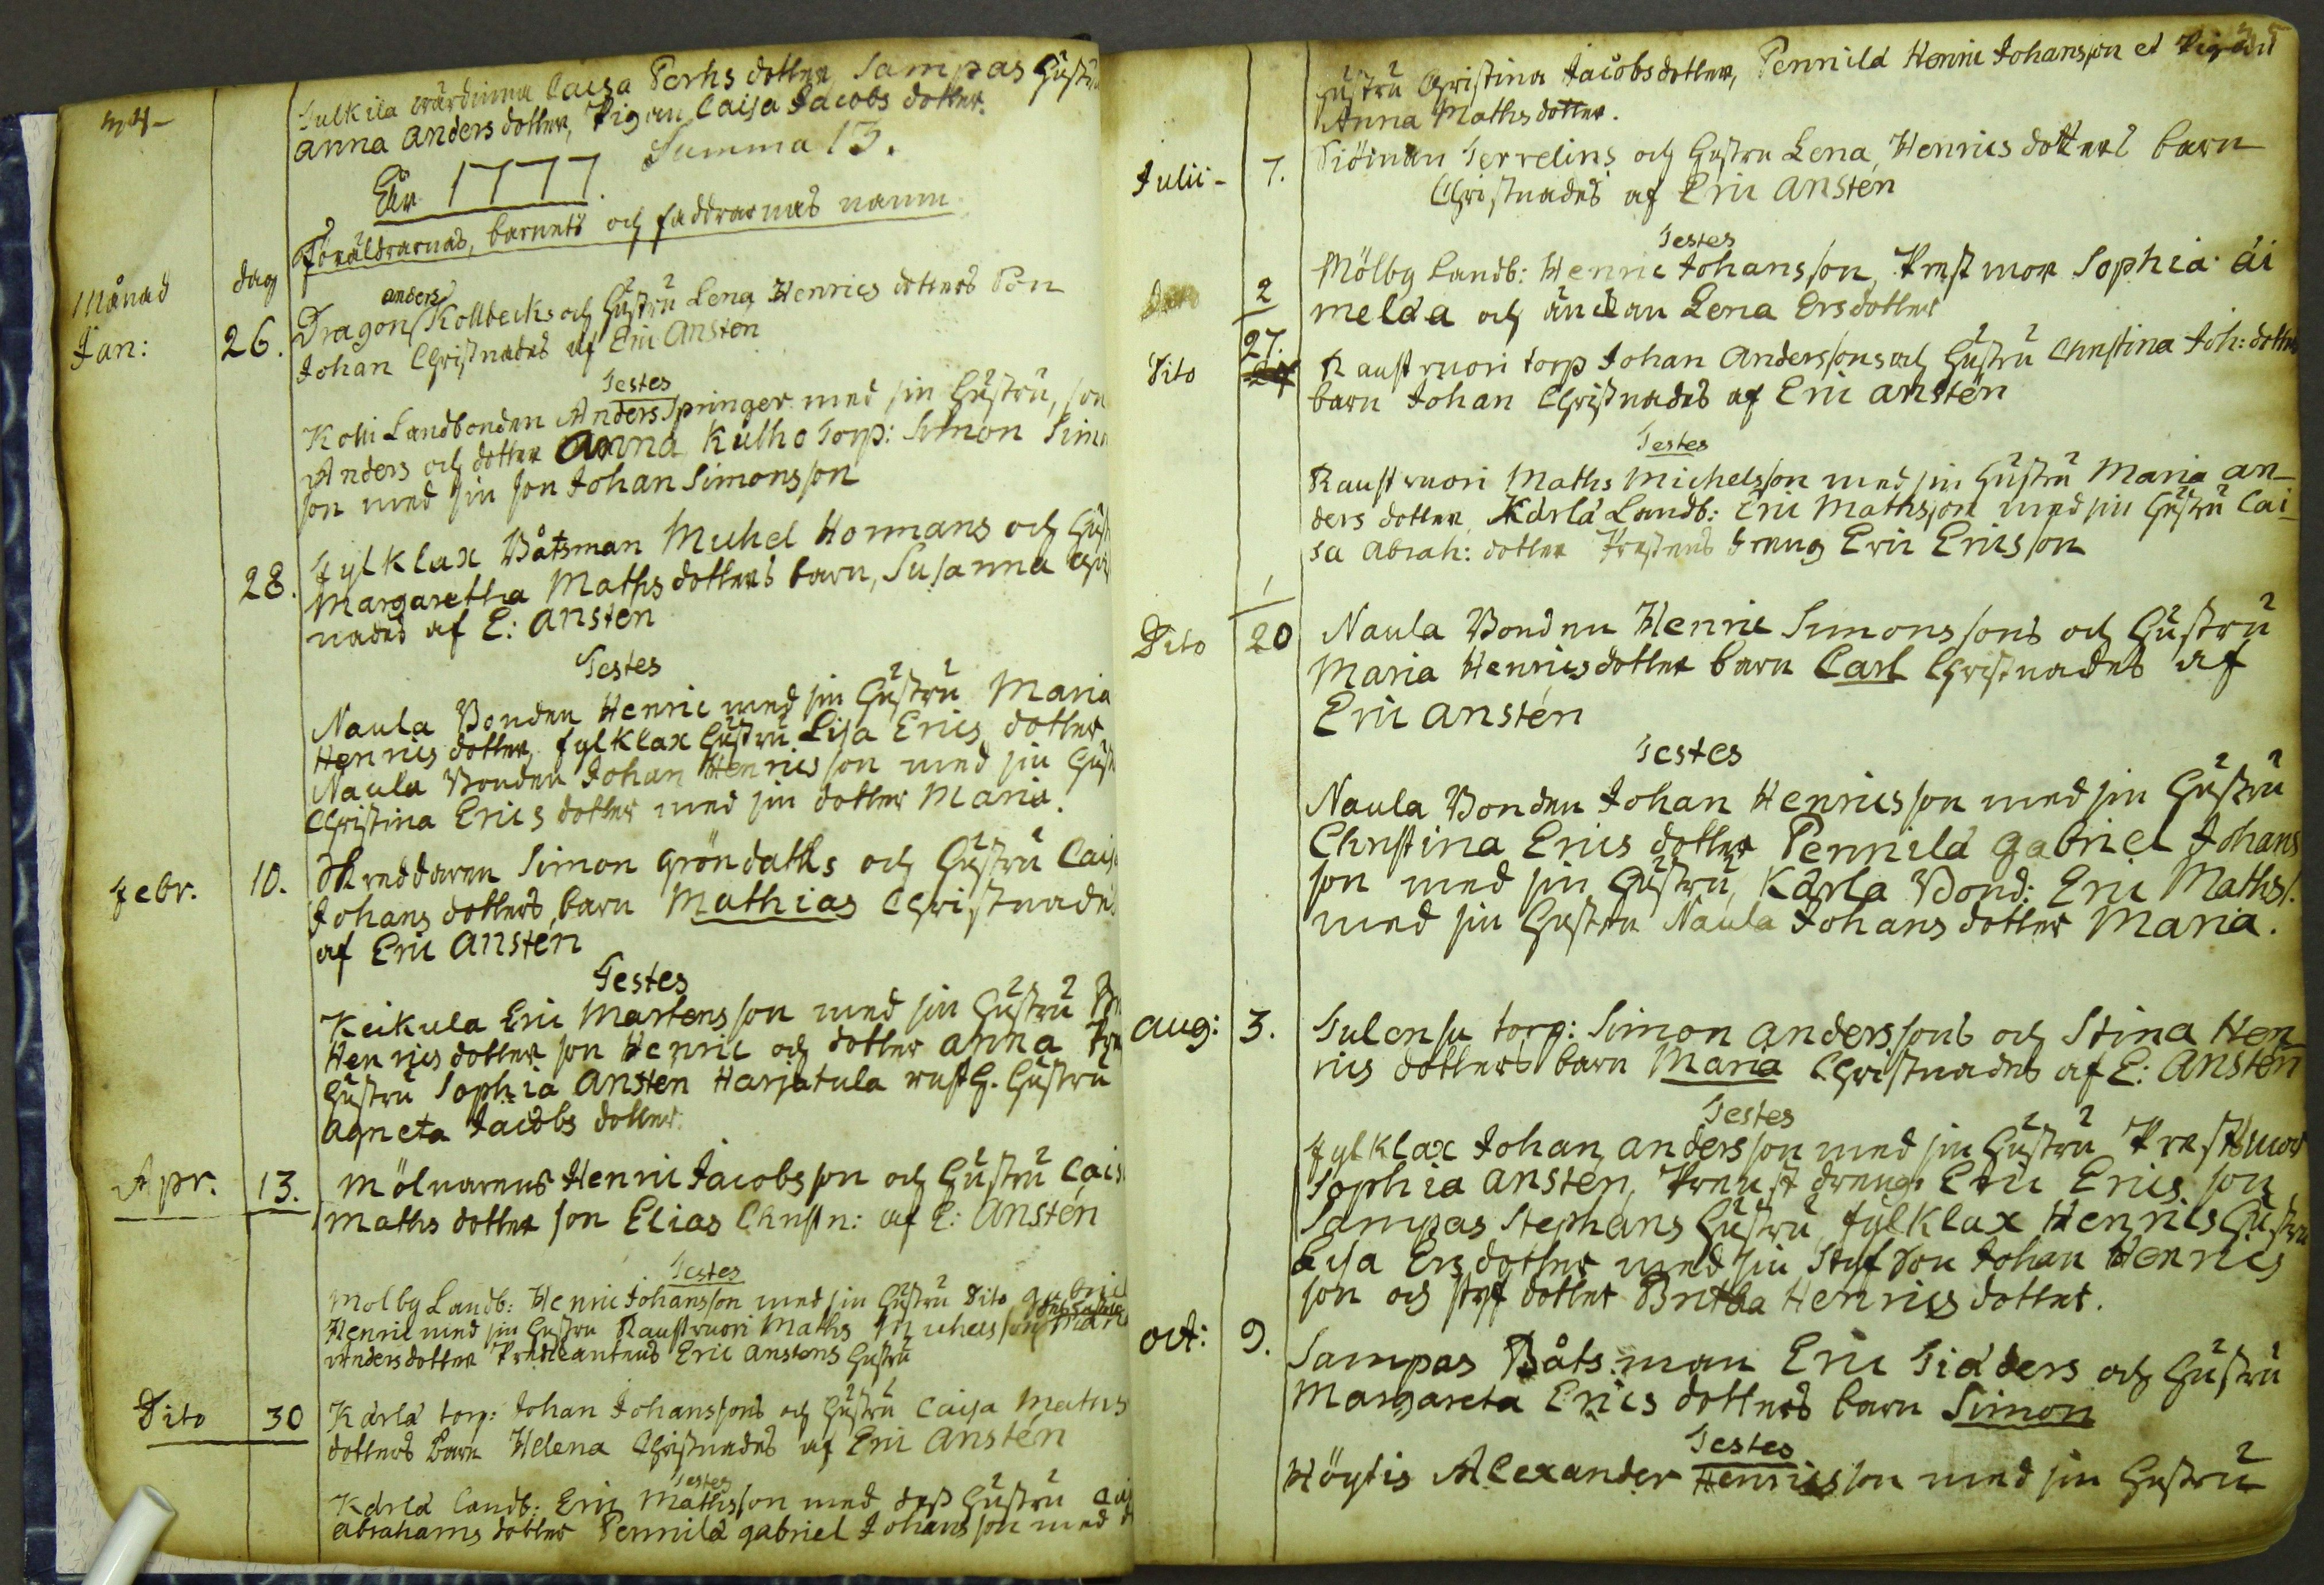 34
Julkila värdinna Caisa Perhs dotter, Sampas Hustru
anna anders dotter, Pigan Caisa Jacobs dotter.
Summa 13.
År 1777.
Föräldrarnas, barnets och faddrarnas namn
Månad dag
Jan: 26. Dragon anders Kollbecks och Hustru Lena Henrics dotters Son
Johan Christnades af Eric Anstén
Testes
Kolii Landbonden Anders Springer med sin Hustru, son
Anders och dotter Anna Kulho Torp: Simon Simons
son med sin son Johan Simonsson
28. Fylklax Båtsman Michel Hormans och Hust
Margaretha Maths dotters barn, Susanna Christ
nades af E: Anstén
Testes
Naula Bonden Henric med sin Hustru Maria
Henrics dotter, Fylklax Hustru Lisa Erics dotter
Naula Bonden Johan Henricsson med sin Hust
Christina Erics dotter med sin dotter Maria.
Febr. 10. Skreddaren Simon Gröndahls och Hustru Caisa
Johans dotters, barn Mathias Christnades
af Eric Anstén
Testes
Keikula Eric Mårtensson med sin Hustru
Henrics dotter son Henric och dotter Anna
Hustru Sophia Anstén Harjatula rusth. Hustru
Agneta Jacobs dotter.
Apr. 13. Mölnarens Henric Jacobsson och Hustru Cais
Maths dotter son Elias Christn: af E: Anstén
Testes
Mölby Landb: Henric Johansson med sin Hustru Dito gabriel
Henric med sin Hustru Raustvuori Maths Michelsson
anders dotter Predicantens Eric Anstens Hustru
Dito 30 Kärlä torp: Johan Johanssons och Hustru Caisa Maths
dotters Barn Helena Christnades af Eric Anstén
Testes
Kärlä Landb: Eric Mathsson med dess Hustru Cais
Abrahams dotter Pennilä gabriel Johansson med
Hustru Christina Jacobs dotter, Pennilä Henric Johansson et Pigan
Anna Mathsdotter.
Julii - 7. Siöman Terrelins och Hustru Lena Henrics dotters barn
Christnades af Eric Anstén
Testes
Mölby Landb: Henric Johansson, Prestmor Sophia Äi
2 melä a och änckan Lena Ersdotter
Dito 27. Raustvuori torp Johan Anderssons och Hustru Christina Joh: dotters
barn Johan Christnades af Eric Anstén
Testes
Raustvuori Maths Michelsson med sin Hustru Maria An-
ders dotter, Kärlä Landb: Eric Mathsson med sin Hustru Cai-
sa Abrah: dotter Prestens Dreng Eric Ericsson
1
Dito 20 Naula Bonden Henric Simonssons och Hustru
Maria Henricsdotter barn Carl Christnades af
Eric Anstén
Testes
Naula Bonden Johan Henricsson med sin Hustru
Christina Erics dotter Pennilä Gabriel Johans
son med sin Hustru, Kärla Bond: Eric Maths s.
med sin Hustru Naula Johans dotter Maria.
Aug: 3. Sulensu torp: Simon Anderssons och Stina Hen
rics dotters barn Maria Christnades af E: Anstén
Testes
Fylklax Johan Andersson med sin Hustru Prestmor
Sophia Anstén, Prenst dreng Eric Ericsson
Sampas Stephans Hustru, Fylklax Henrics Hustru
Lisa Ersdotter med sin Styfson Johan Henrics
son och styf dotter Britha Henrics dotter.
Oct: 9. Sampas Båtsman Eric Tidders och Hustru
Margareta Erics dotters barn Simon
Testes
Höytis Alexander Henricsson med sin Hustru